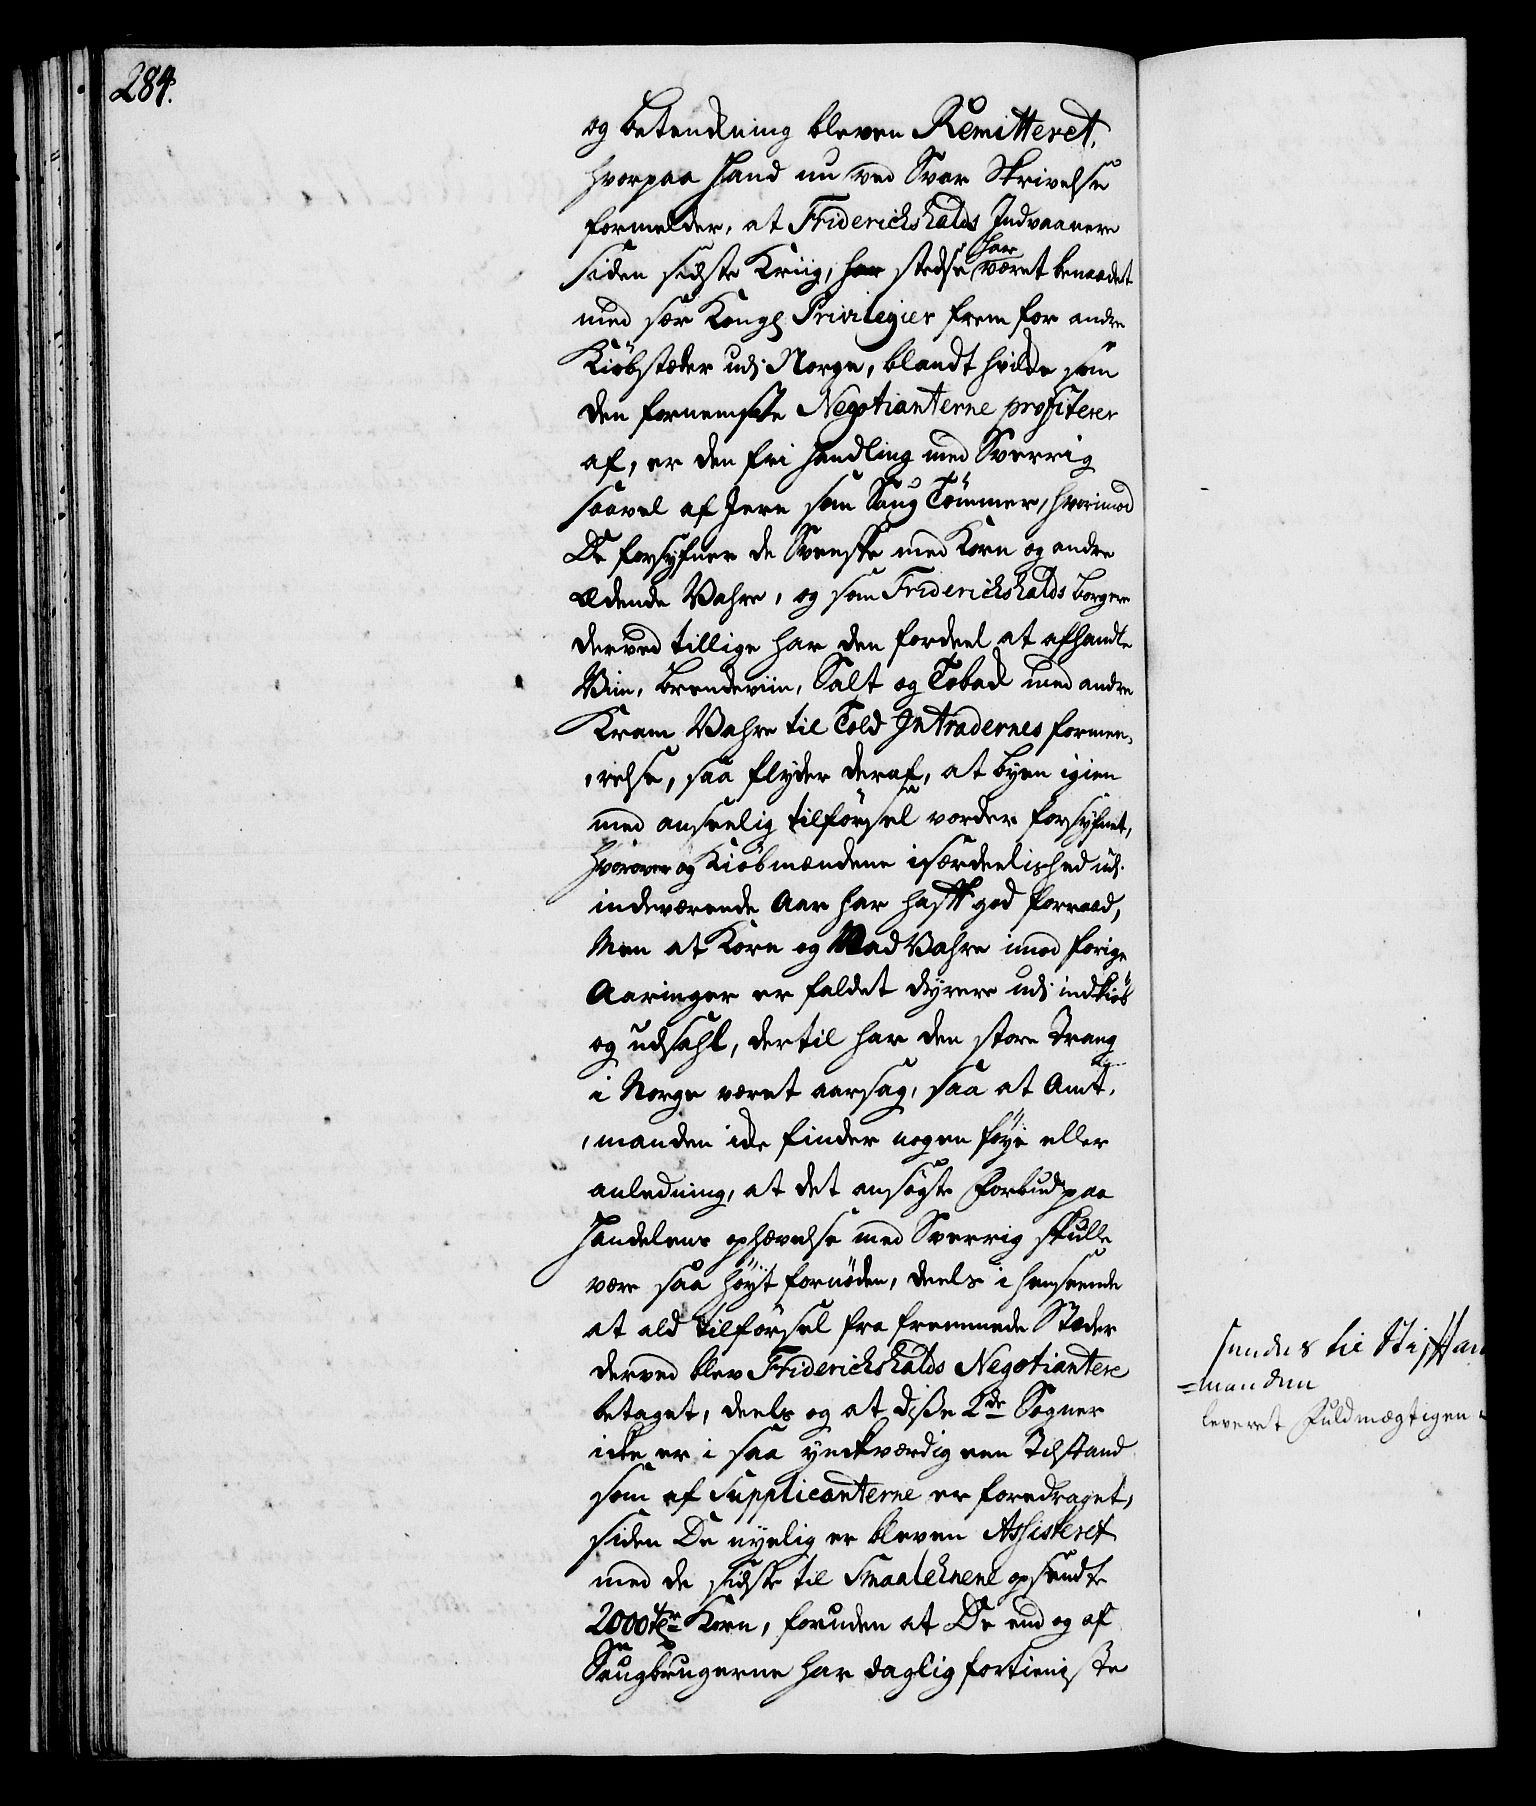 284.
og betenckning bleven Remitteret,
hvorpaa Hand nu ved Svar Skrivelse
formelder, at Friderichshalds Indvaanere
siden sidste Kriig, har stedse har været benaadet
med sær Kongl Privilegier frem for andre
Kiøbstæder udj Norge, blandt hvilcke som
den fornemste Negotianterne profiterer
af, er den frj Handling med Sverrig
saavel af Jern som Saug Tömmer, hvorimod
De forsyner de Svenske med Korn og andre
ædende Vahre, og som Friderichshalds borgere
derved tillige har den fordeel at afhandle
Viin, brendeviin, Salt og Toback med andre
Kram Vahre til Told Intradernes formee-
relse, saa flyder deraf, at byen igien
med anseelig tilförsel vorder forsynet,
hvorover og Kiöbmændene isærdeelished udj
indeværende Aar har hafft god forraad,
Men at Korn og Mad Vahre imod forige
Aaringer er faldet dyrere udj indkiöb
og udsahl, dertil har den store Trang
i Norge været aarsag, saa at Amt-
manden icke finder nogen föye eller
anledning, at det ansøgte Forbud paa
Handelens ophævelse med Sverrig skulle
være saa höyt fornöden, deels i henseende
at ald tilförsel fra fremmede Stæder
derved blev Friderichshalds Negotiantere
betaget, deels og at disse 2de Sogner
icke er i saa ynckværdig een Tilstand
som af Supplicanterne er foredraget,
siden De nyelig er bleven Assisteret
med de sidste til Smaalehnene opsendte
2000 tr Korn, foruden at De end og af
Saugbrugerne har daglig fortieniste
sendes til Stifftam
=manden
leveret Fuldmægtigen